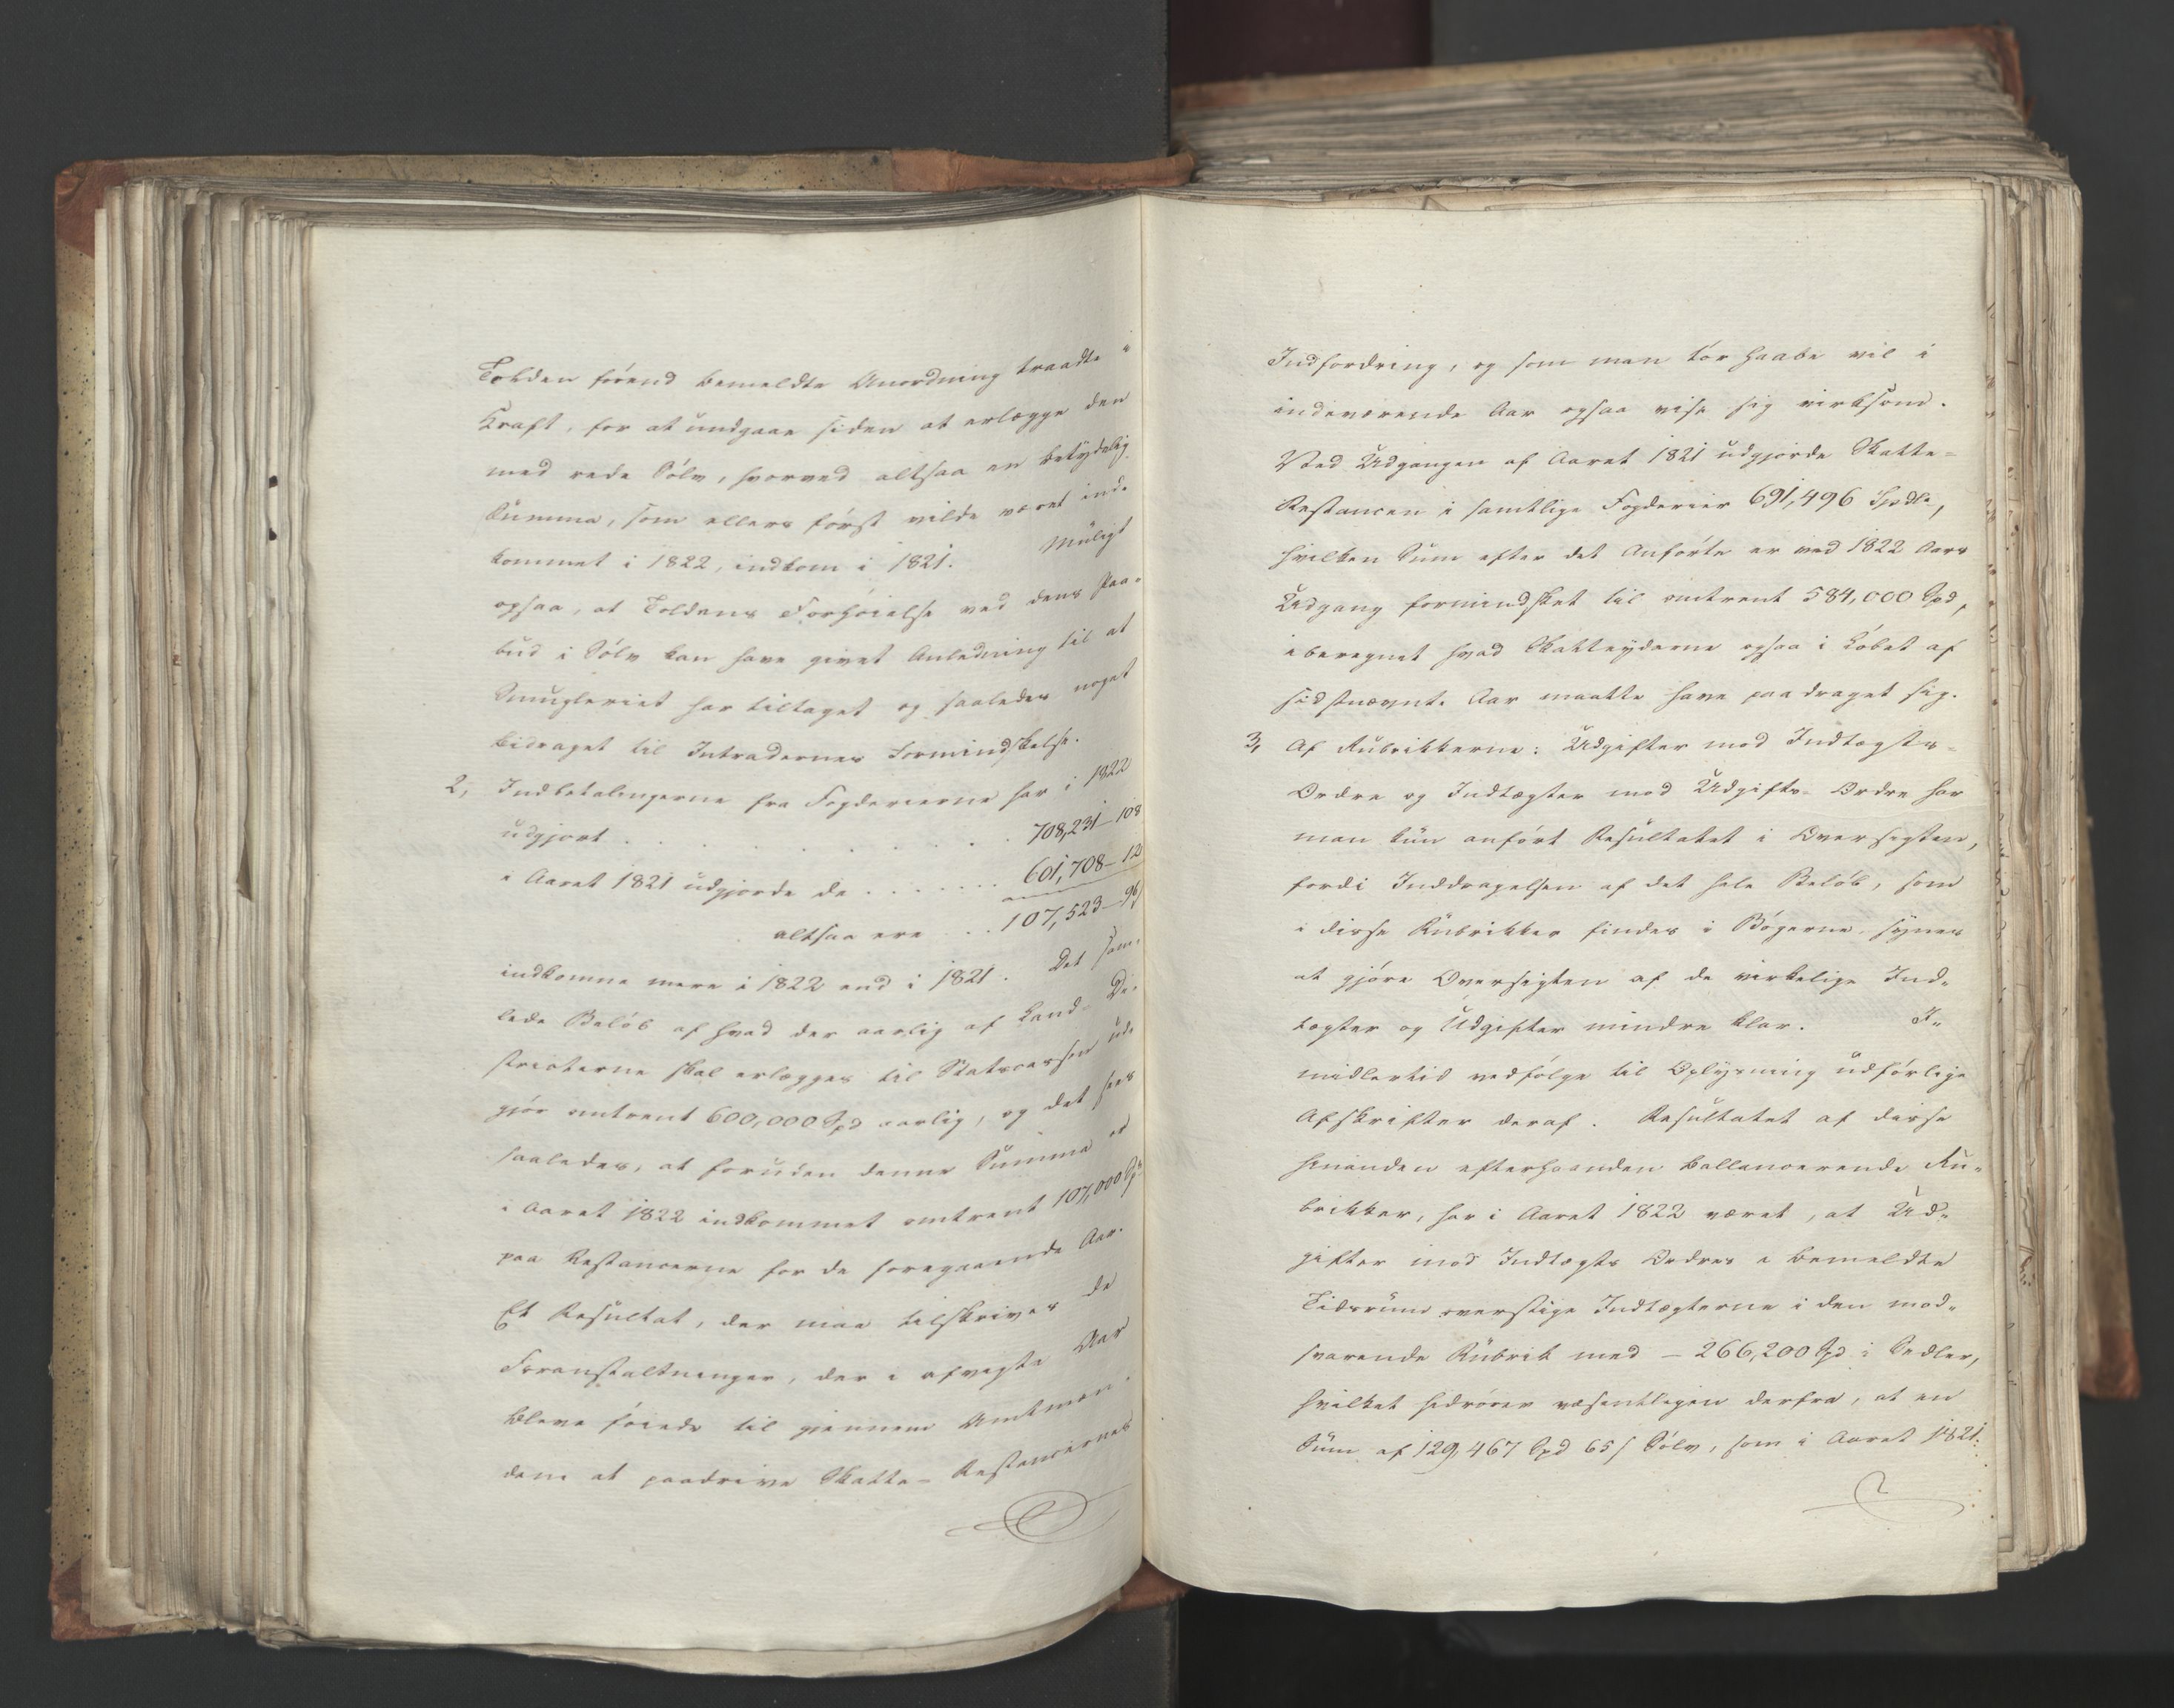 Tolden førend bemeldte Anordning traadte i
Kraft, for at undgaae siden at erlægge den
med rede Sølv, hvorved altsaa en betydelig
Summa, som ellers først vilde været ind-
kommet i 1822, indkom i 1821. Muligt
ogsaa, at Toldens Forhøielse ved dens Paa-
bud i Sølv kan have givet Anledning til at
Smugleriet har tiltaget og saaledes noget
bidraget til Intradernes Formindskelse.
2, Indbetalingerne fra Fogderierne har i 1822
udgjort . . . . . . . . . 708,231-108
i Aaret 1821 udgjorde de . . . . . . . 601,708-12
altsaa ere . . . 107,523-96
indkomne mere i 1822 end i 1821. Det sam-
lede Beløb af hvad der aarlig af Land-Di-
stricterne skal erlægges til Statscassen ud-
gjør omtrent 600,000 Spd aarlig, og det sees
saaledes, at foruden denne Summa er
i Aaret 1822 indkommet omtrent 107,000 Spd
paa Restancerne for de foregaaende Aar.
Et Resultat, der maa tilskrives de
Foranstaltninger, der i afvigte Aar
bleve føiede til gjennem Amtmæn-
dene at paadrive Skatte-Restancernes
Indfordring, og som man tør haabe vil i
indeværende Aar ogsaa vise sig virksom.
Ved Udgangen af Aaret 1821 udgjorde Skatte-
Restancen i samtlige Fogderier 691,496 Spdlr,
hvilken Sum efter det Anførte er ved 1822 Aars
Udgang formindsket til omtrent 584,000 Spd,
iberegnet hvad Skatteyderne ogsaa i Løbet af
sidstnævnte Aar maatte have paadraget sig.
3, Af Rubrikkerne: Udgifter mod Indtægts-
Ordre og Indtægter mod Udgifts-Ordre har
man kun anført Resultatet i Oversigten,
fordi Inddragelsen af det hele Beløb, som
i disse Rubrikker findes i Bøgerne, synes
at gjøre Oversigten af de virkelige Ind-
tægter og Udgifter mindre klar. I-
midlertid vedfølge til Oplysning udførlige
Afskrifter deraf. Resultatet af disse
hinanden efterhaanden ballancerende Ru-
brikker, har i Aaret 1822 været, at Ud-
gifter mod Indtægts Ordres i bemeldte
Tidsrum overstige Indtægterne i den mod-
svarende Rubrik med - 266,200 Spd i Sedler,
hvilket hidrører væsentligen derfra, at en
Sum af 129,467 Spd 65 s Sølv, som i Aaret 1821